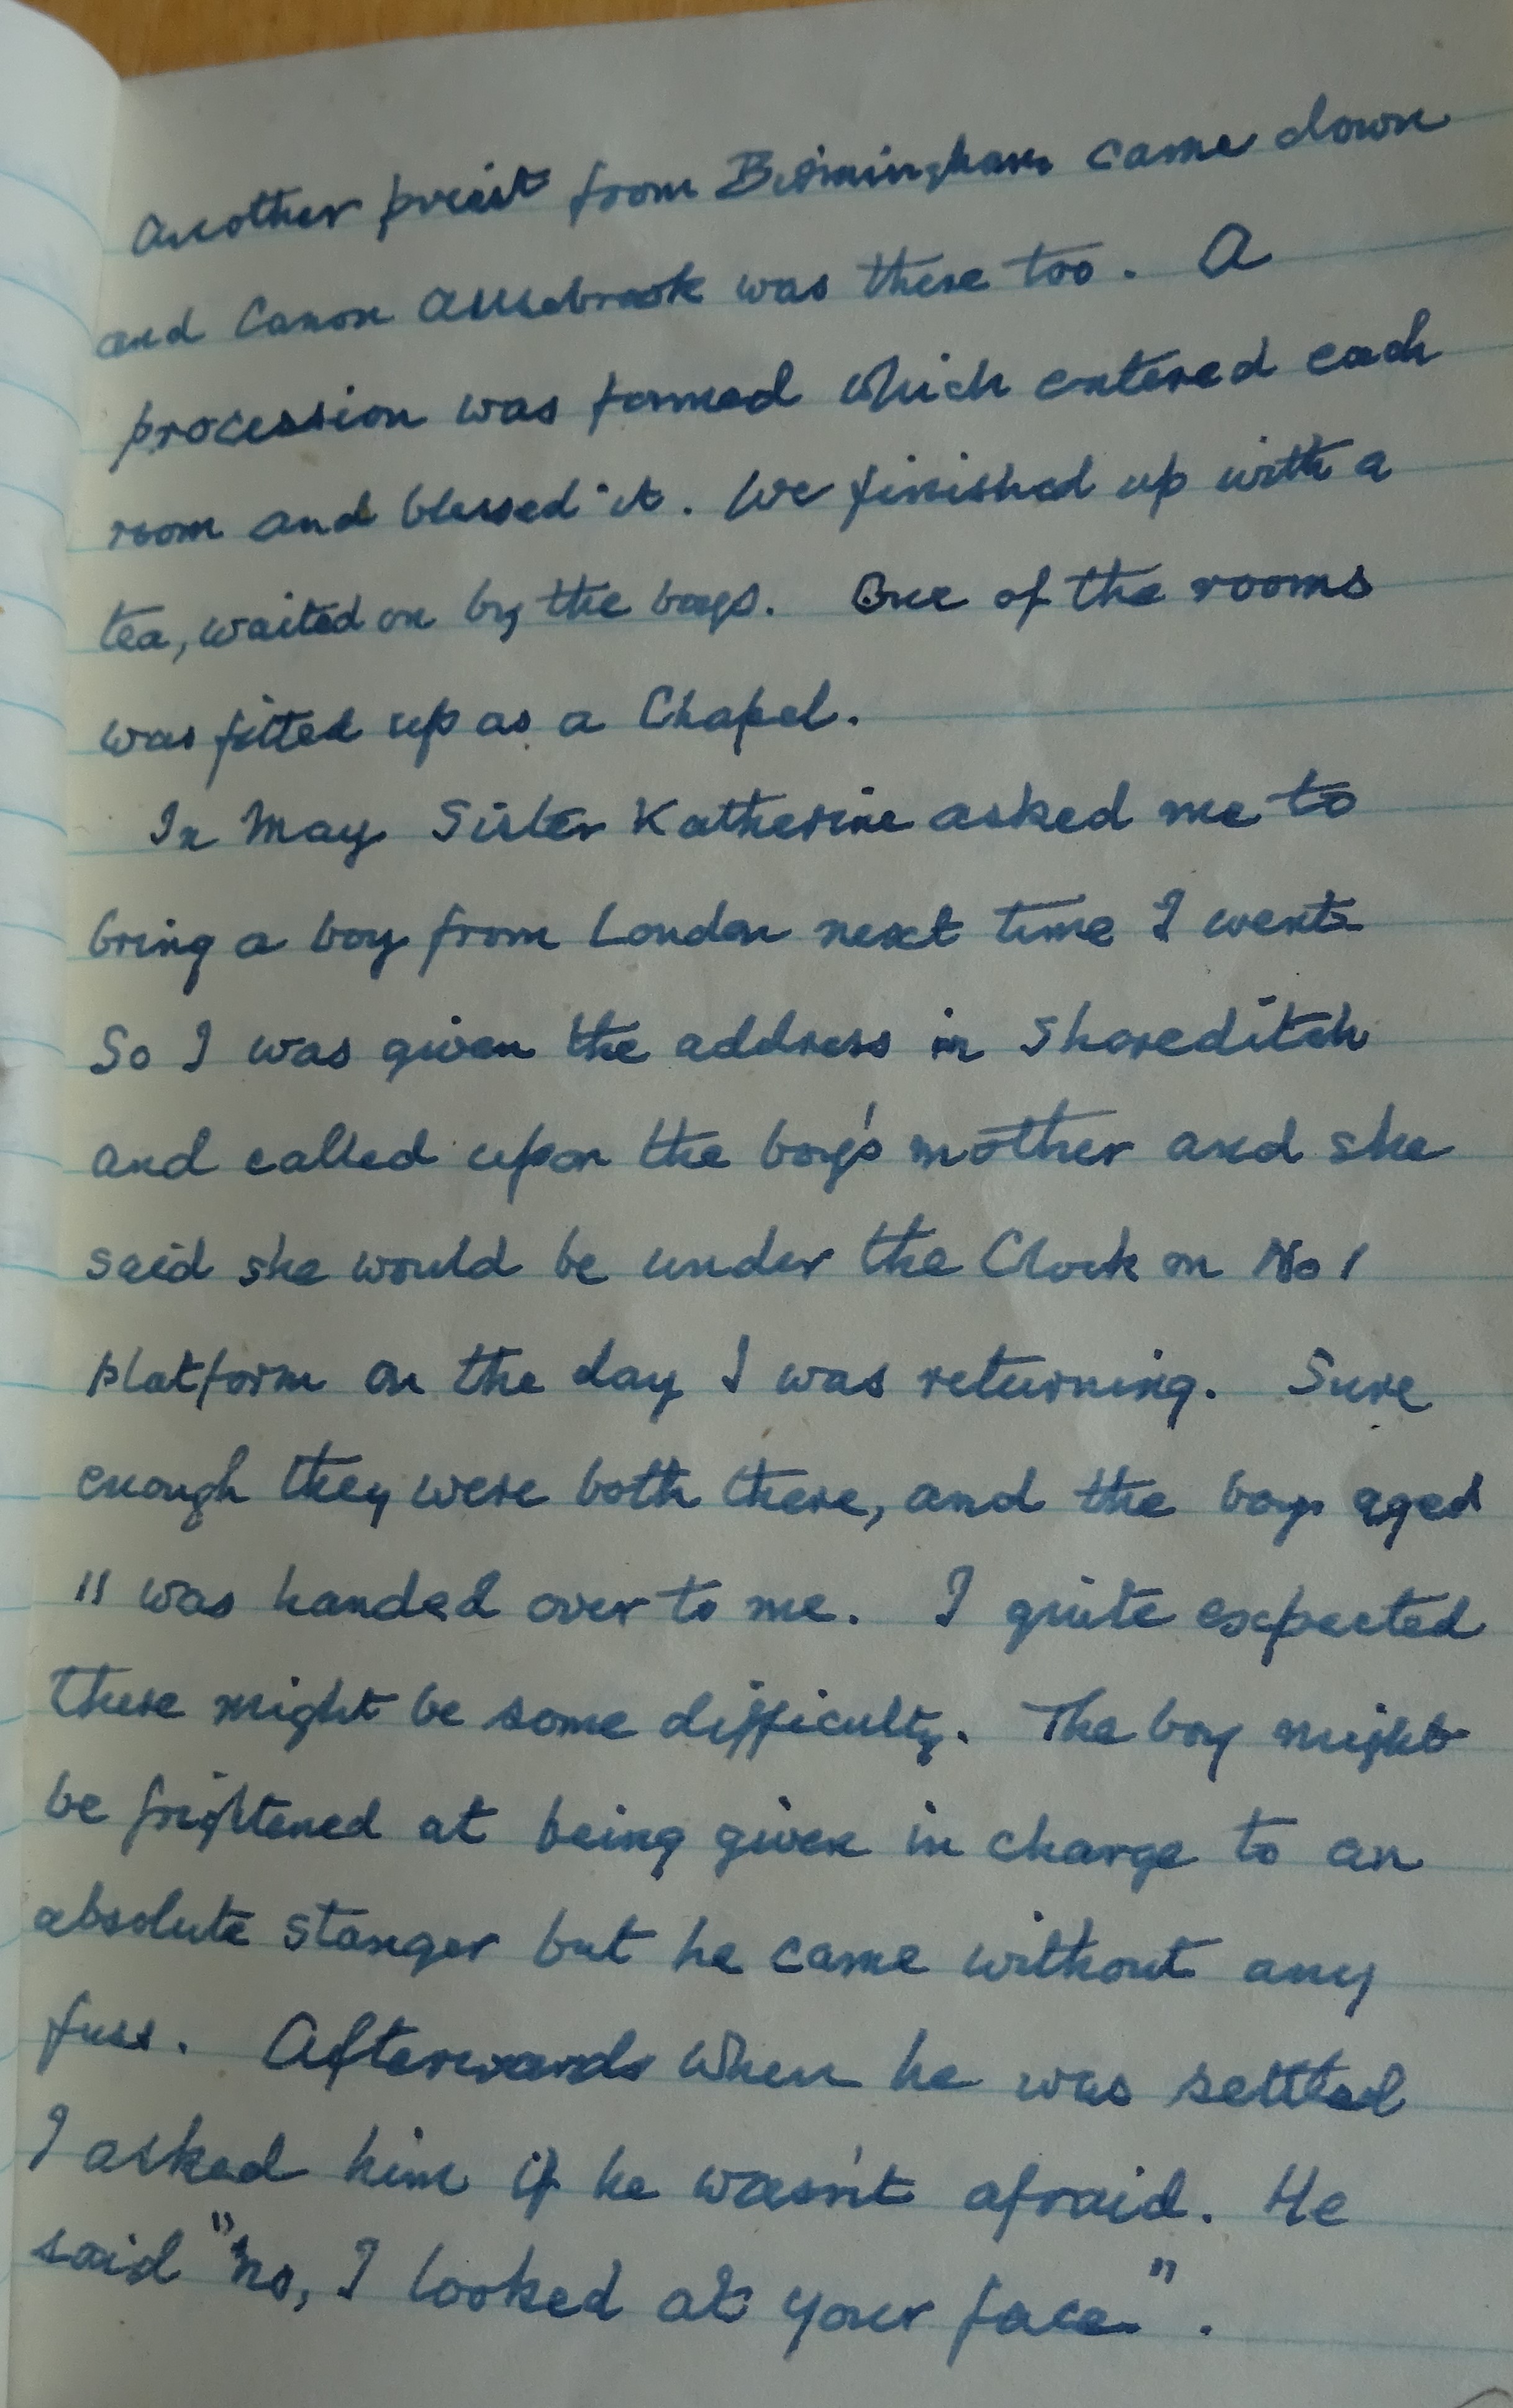 Another priest from Birmingham came down
and Canon Allsebrook was there too. A
procession was formed which entered each
room and blessed it. We finished up with a
tea, waited on by the boys. One of the rooms
was fitted up as a Chapel.
In May Sister Katherine asked me to
bring a boy from London next time I went
So I was given the address in Shoreditch
and called upon the boy's mother and she
said she would be under the Clock on No 1
platform on the day I was returning. Sure
enough they were both there, and the boy aged
11 was handed over to me. I quite expected
there might be some difficulty. The boy might
be frightened at being given in charge to an
absolute stanger but he came without any
fuss. Afterwards when he was settled
I asked him if he wasn't afraid. He
said "no, I looked at your face".